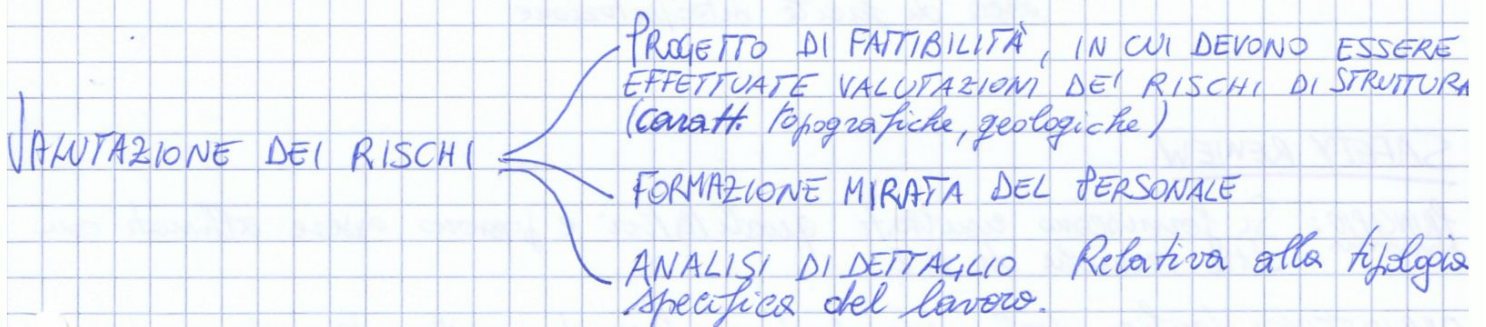 VALUTAZIONE DEI RISCHI
PROGETTO DI FATTIBILITÀ, IN CUI DEVONO ESSERE
EFFETTUATE VALUTAZIONI DEI RISCHI DI STRUTTURA
(caratt. topografiche, geologiche)
FORMAZIONE MIRATA DEL PERSONALE
ANALISI DI DETTAGLIO Relativa alla tipologia
specifica del lavoro.
SAFETY REVIEW